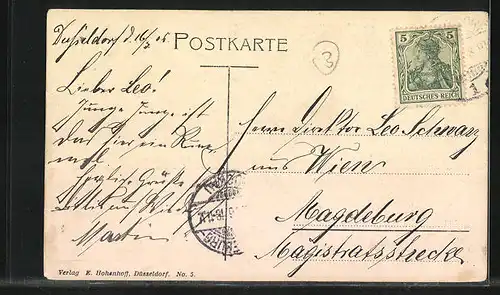 Düsseldorf d. 16/3 06
POSTKARTE
3
5 5
DEUTSCHES REICH
1
Lieber Leo!
Junge Junge ist
das hier ein Rummel
Herzliche Grüße
Martin
Herrn Direktor Leo Schwarz
aus Wien
Magdeburg
Magistratsstrecke
Verlag E. Hohenhoff, Düsseldorf. No. 5.